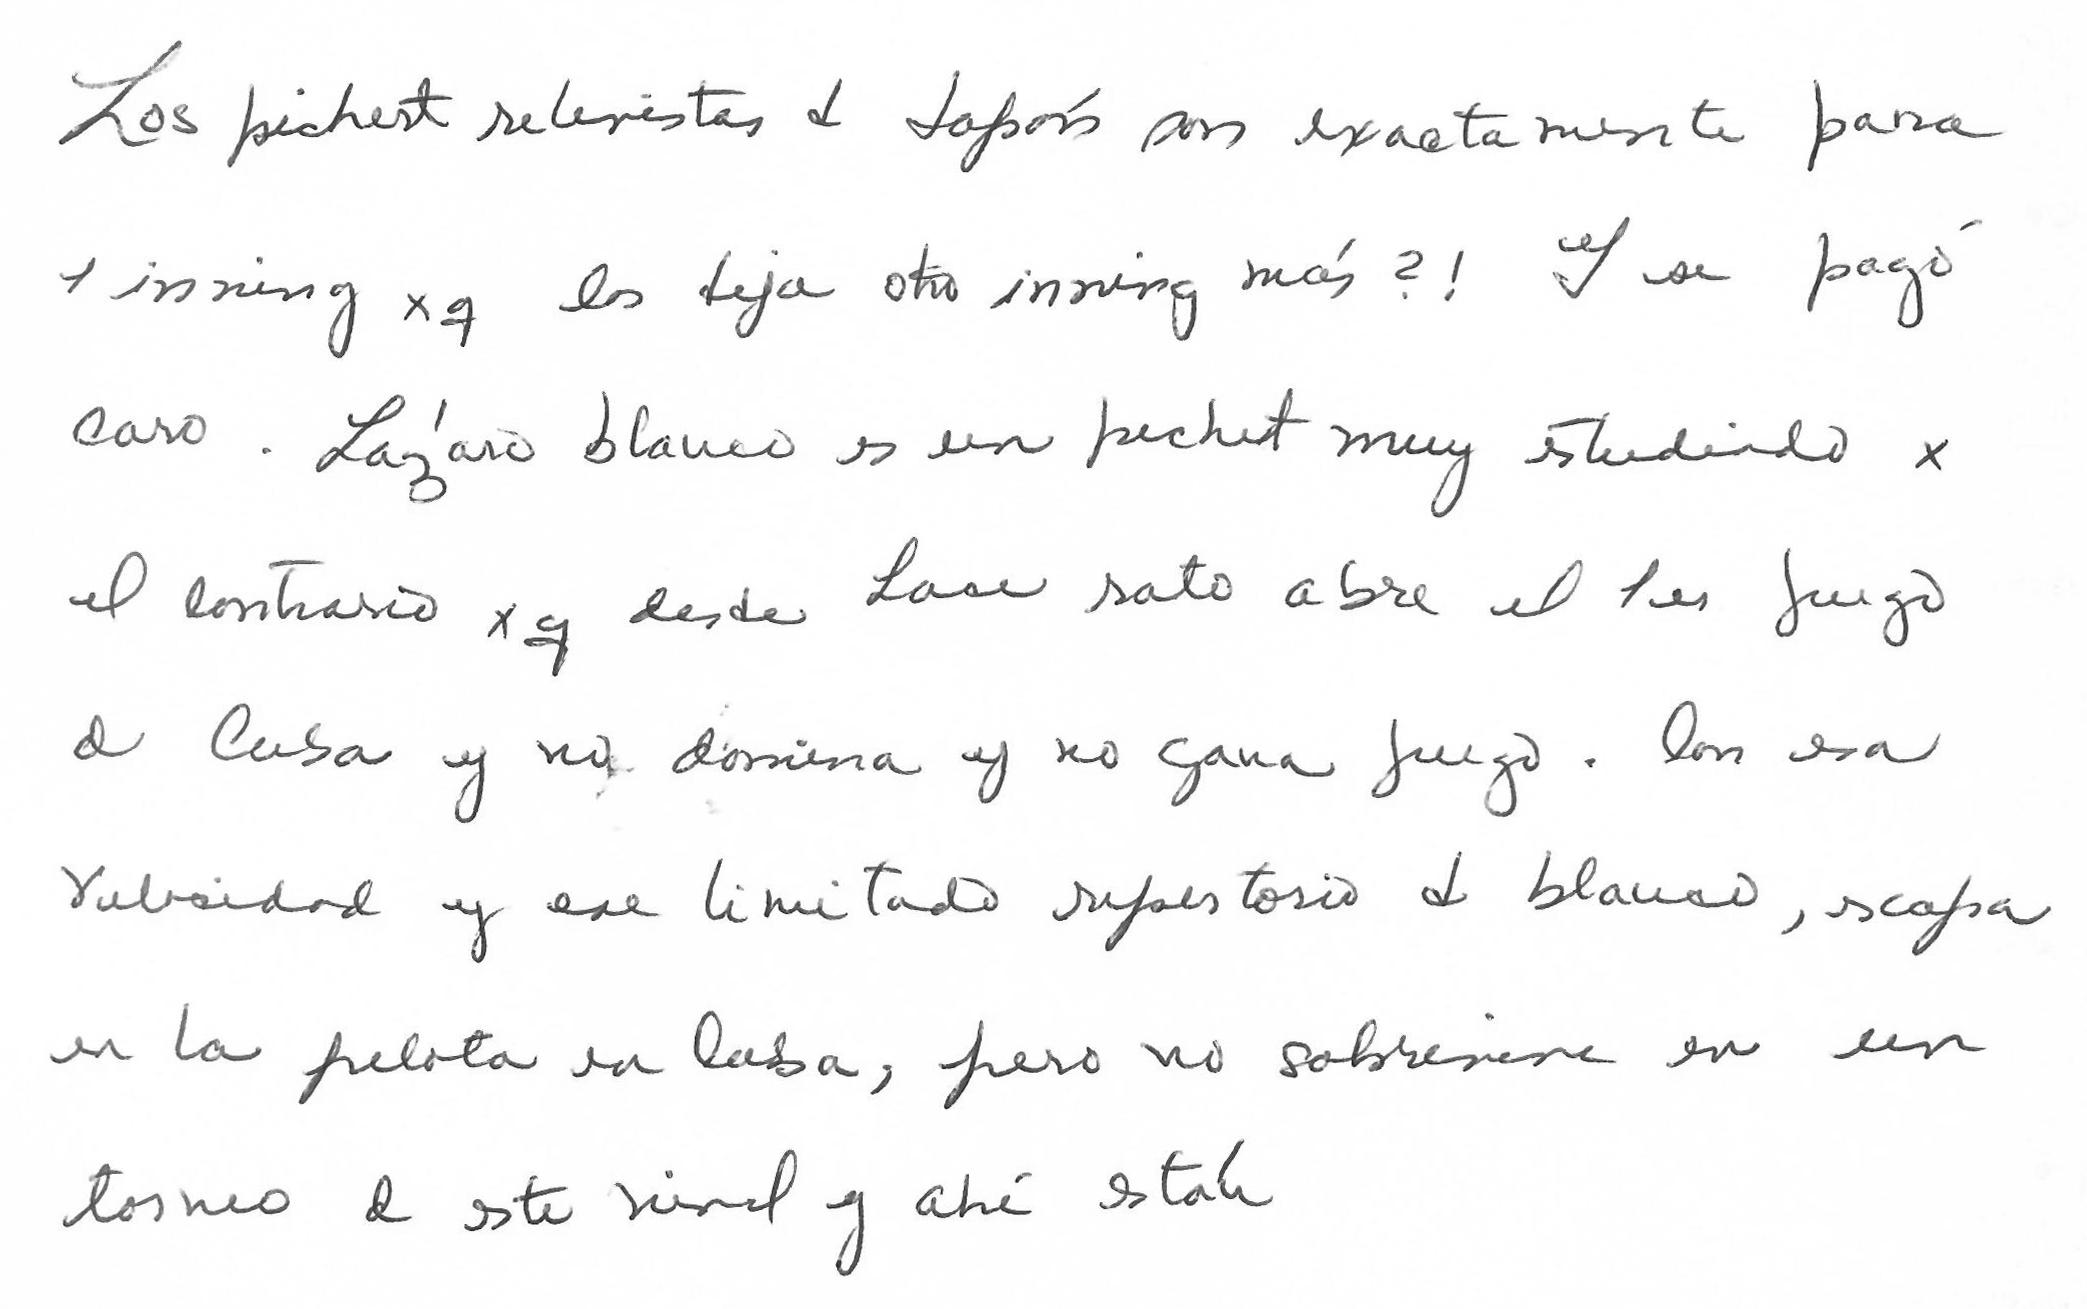 Los pichert relevistas d Japón son exactamente para
1 inning xq los deja otro inning más?! Y se pagó
caro. Lázaro blanco es un pichert muy estudiado x
el contrario xq desde hace rato abre el 1er juego
d Cuba y no domina y no gana juego. Con esa
velocidad y ese limitado repertorio d blanco, escapa
en la pelota en Cuba, pero no sobrevive en un
torneo d este nivel y ahí están